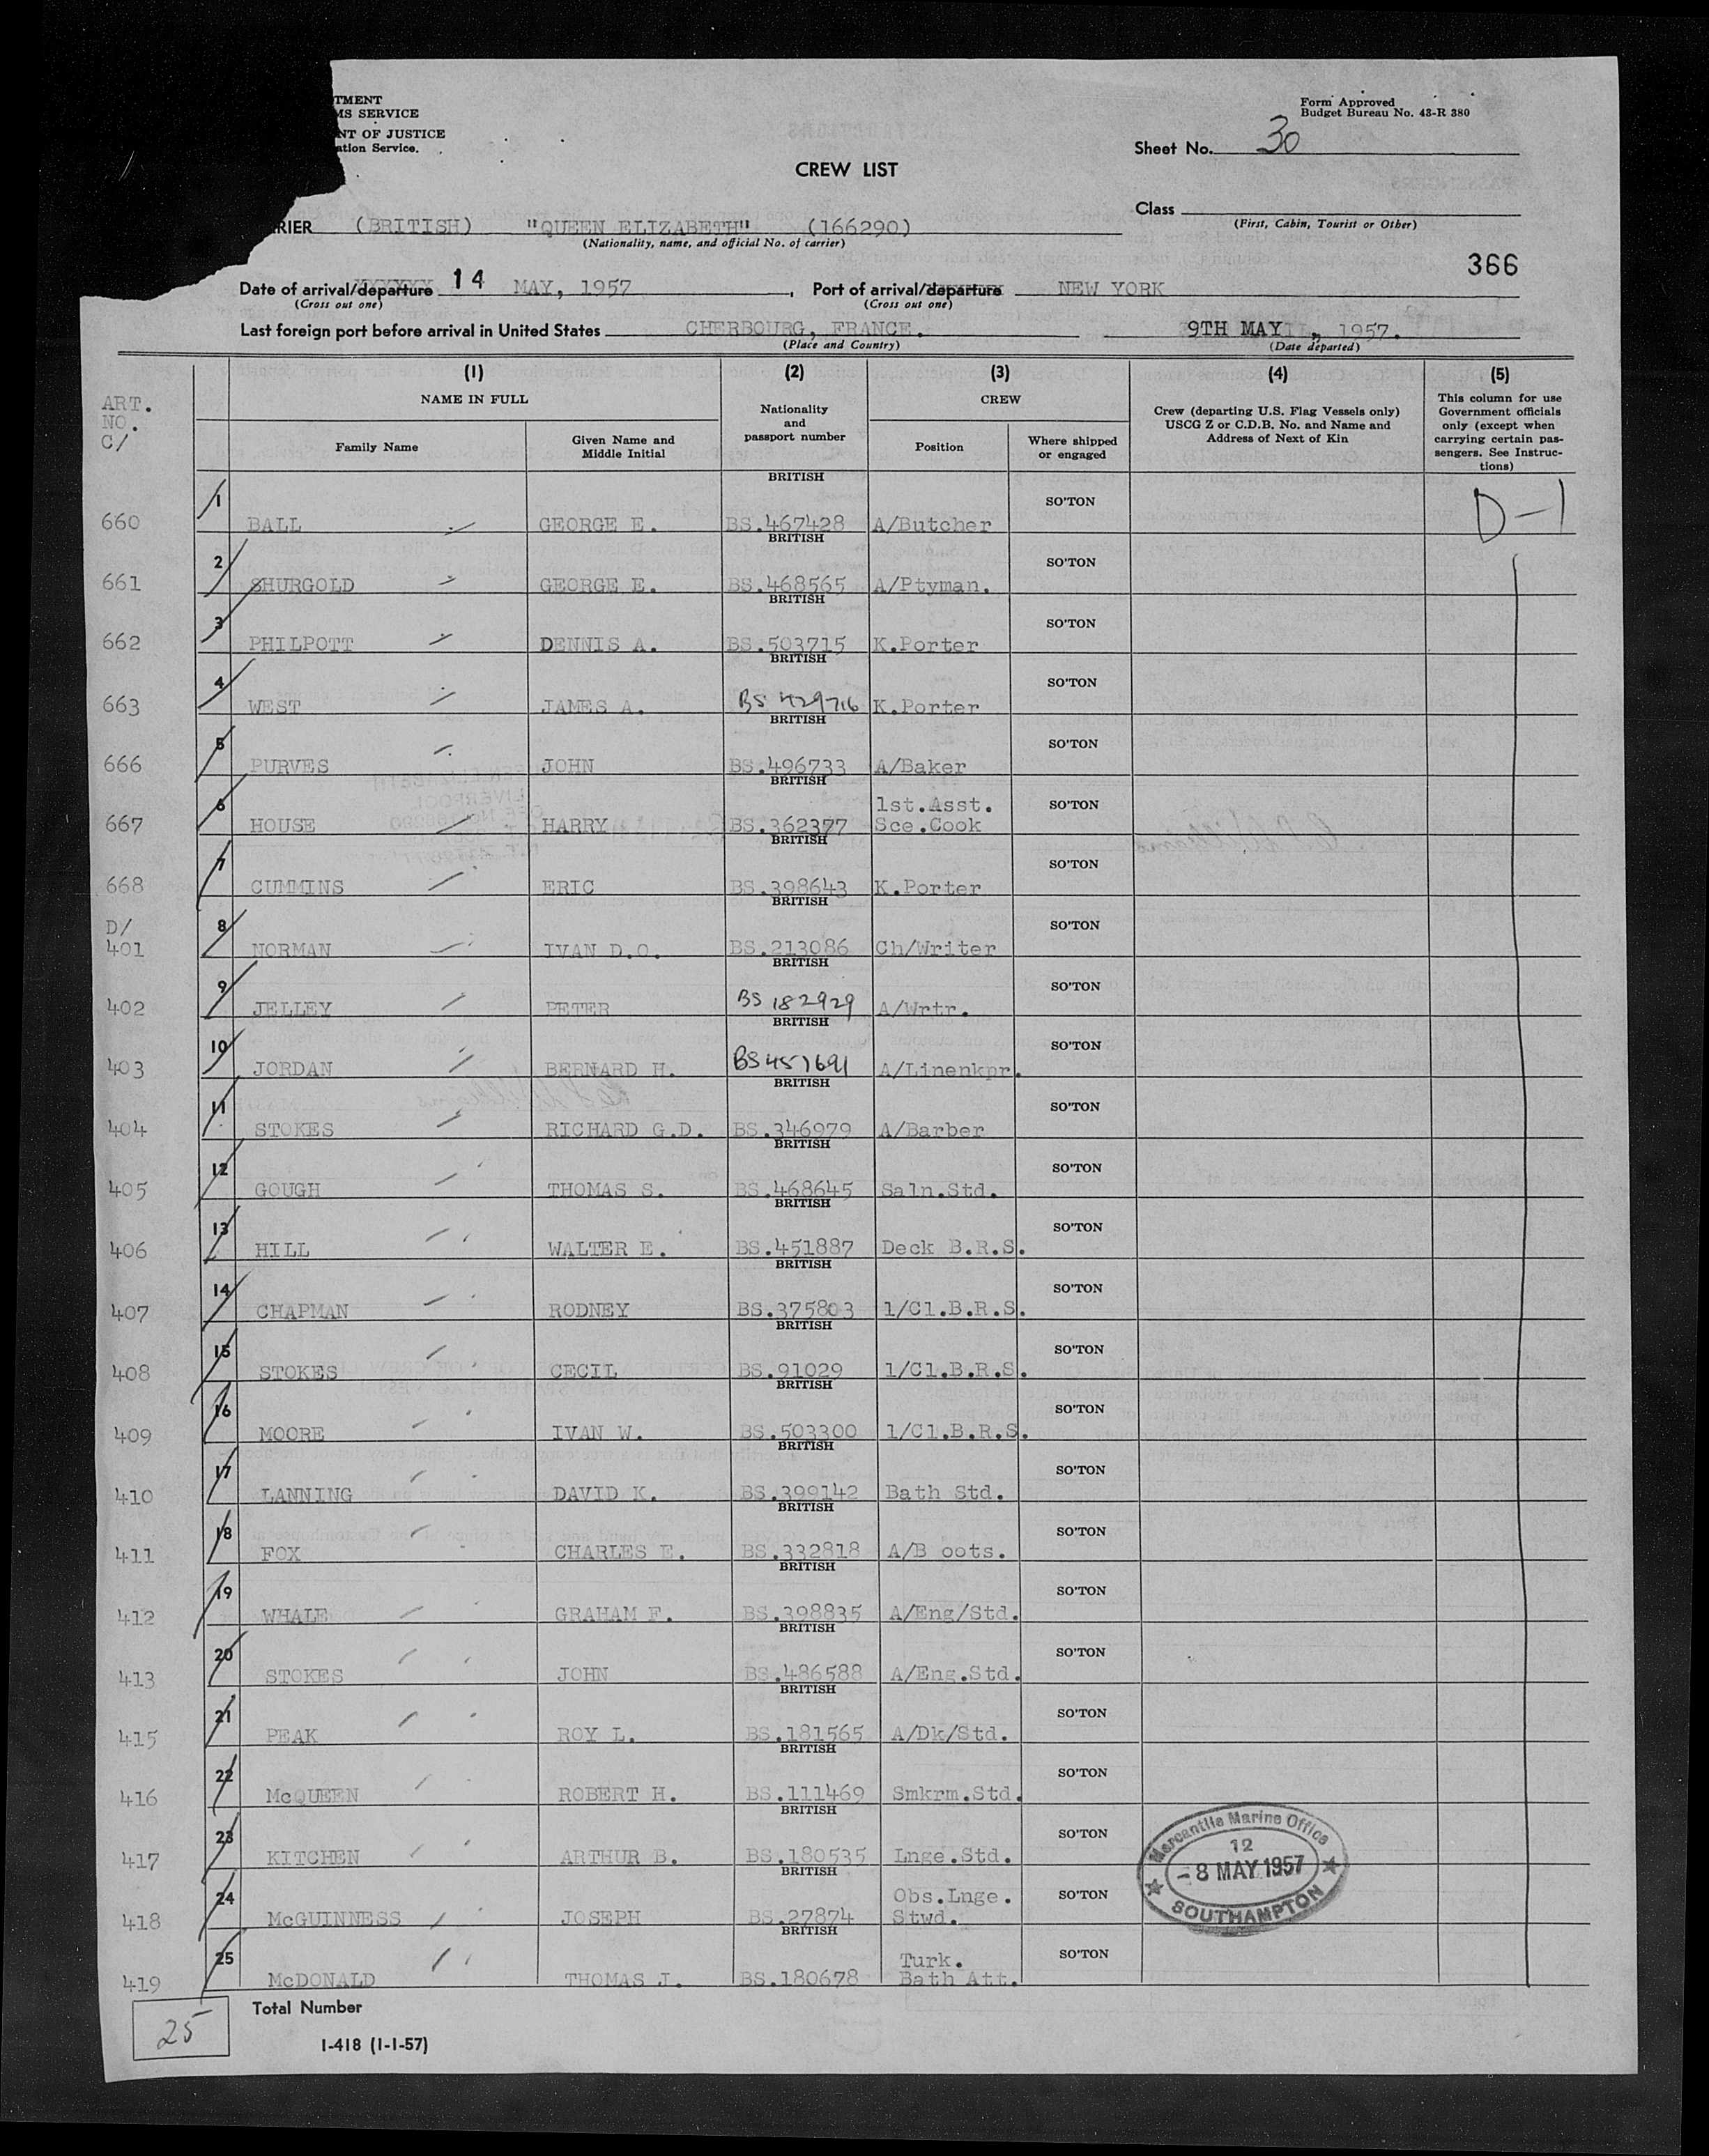 TMENT
MS SERVICE
NT OF JUSTICE
ation Service.
Form Approved
Budget Bureau No. 43-R 380
Sheet No. 30
CREW LIST
Class
(First, Cabin, Tourist or Other)
RIER (BRITISH) "QUEEN ELIZABETH" (166290)
(Nationality, name, and official No. of carrier)
366
Date of arrival/departure 14 MAY, 1957, Port of arrival/departure NEW YORK
(Cross out one) (Cross out one)
Last foreign port before arrival in United States CHERBOURG, FRANCE. 9TH MAY, 1957.
(Place and Country) (Date departed)
ART. NO. C/
(1) (2) (3) (4) (5)
NAME IN FULL
Family Name
Given Name and Middle Initial
Nationality and passport number
CREW
Position
Where shipped or engaged
Crew (departing U.S. Flag Vessels only) USCG Z or C.D.B. No. and Name and Address of Next of Kin
This column for use Government officials only (except when carrying certain passengers. See Instructions)
660 1 BALL GEORGE E. BRITISH BS.467428 A/Butcher SO'TON D-1
661 2 SHURGOLD GEORGE E. BRITISH BS.468565 A/Ptyman. SO'TON
662 3 PHILPOTT DENNIS A. BRITISH BS.503715 K.Porter SO'TON
663 4 WEST JAMES A. BRITISH BS 429716 K.Porter SO'TON
666 5 PURVES JOHN BRITISH BS.496733 A/Baker SO'TON
667 6 HOUSE HARRY BRITISH BS.362377 1st.Asst. Sce.Cook SO'TON
668 7 CUMMINS ERIC BRITISH BS.398643 K.Porter SO'TON
D/ 401 8 NORMAN IVAN D.O. BRITISH BS.213086 Ch/Writer SO'TON
402 9 JELLEY PETER BRITISH BS 182929 A/Wrtr. SO'TON
403 10 JORDAN BERNARD H. BRITISH BS 457691 A/Linenkpr. SO'TON
404 11 STOKES RICHARD G.D. BRITISH BS.346979 A/Barber SO'TON
405 12 GOUGH THOMAS S. BRITISH BS.468645 Saln.Std. SO'TON
406 13 HILL WALTER E. BRITISH BS.451887 Deck B.R.S. SO'TON
407 14 CHAPMAN RODNEY BRITISH BS.375803 1/Cl.B.R.S. SO'TON
408 15 STOKES CECIL BRITISH BS.91029 1/Cl.B.R.S. SO'TON
409 16 MOORE IVAN W. BRITISH BS.503300 1/Cl.B.R.S. SO'TON
410 17 LANNING DAVID K. BRITISH BS.399142 Bath Std. SO'TON
411 18 FOX CHARLES E. BRITISH BS.332818 A/B oots. SO'TON
412 19 WHALE GRAHAM F. BRITISH BS.398835 A/Eng/Std. SO'TON
413 20 STOKES JOHN BRITISH BS.486588 A/Eng.Std. SO'TON
415 21 PEAK ROY L. BRITISH BS.181565 A/Dk/Std. SO'TON
416 22 McQUEEN ROBERT H. BRITISH BS.111469 Smkrm.Std. SO'TON
417 23 KITCHEN ARTHUR B. BRITISH BS.180535 Lnge.Std. SO'TON
418 24 McGUINNESS JOSEPH BRITISH BS.27874 Obs.Lnge. Stwd. SO'TON
419 25 McDONALD THOMAS J. BRITISH BS.180678 Turk. Bath Att. SO'TON
Mercantile Marine Office
12
-8 MAY 1957
SOUTHAMPTON
25 Total Number
I-418 (1-1-57)